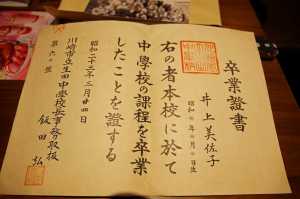 卒業證書
井上美佐子
昭和 年 月 日生
右の者本校に於て
中學校の課程を卒業
したことを證する
昭和二十三年三月廿四日
川崎市立生田中學校長事務取扱
飯田
第六号